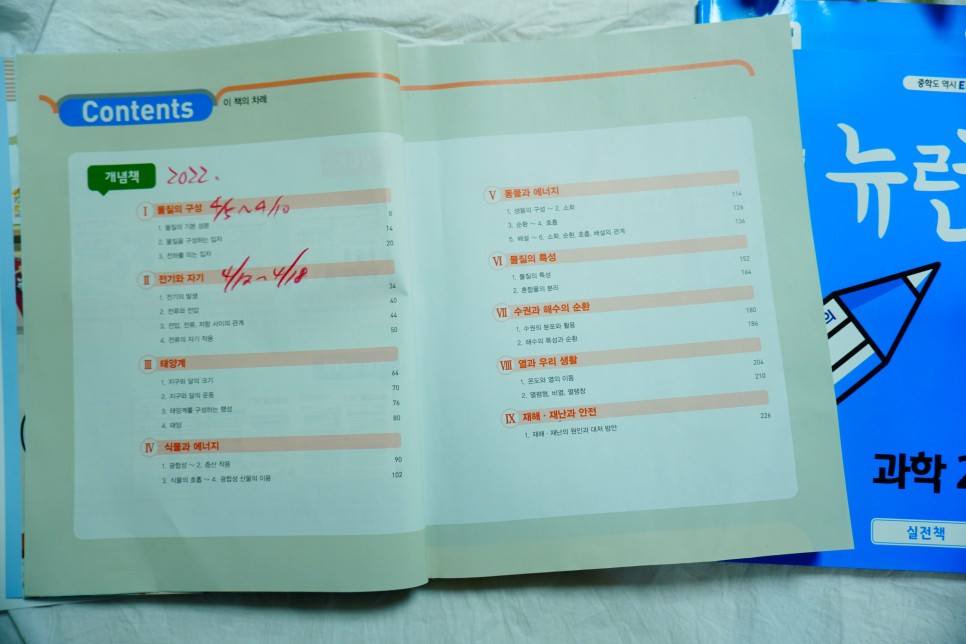 Contents 이 책의 차례
개념책 2022.
Ⅰ 물질의 구성 4/5~4/10
1. 물질의 기본 성분 8
2. 물질을 구성하는 입자 14
3. 전하를 띠는 입자 20
Ⅱ 전기와 자기 4/12~4/18
1. 전기의 발생 34
2. 전류와 전압 40
3. 전압, 전류, 저항 사이의 관계 44
4. 전류의 자기 작용 50
Ⅲ 태양계
1. 지구와 달의 크기 64
2. 지구와 달의 운동 70
3. 태양계를 구성하는 행성 76
4. 태양 80
Ⅳ 식물과 에너지
1. 광합성 ~ 2. 증산 작용 90
3. 식물의 호흡 ~ 4. 광합성 산물의 이용 102
Ⅴ 동물과 에너지
1. 생물의 구성 ~ 2. 소화 114
3. 순환 ~ 4. 호흡 126
5. 배설 ~ 6. 소화, 순환, 호흡, 배설의 관계 136
Ⅵ 물질의 특성
1. 물질의 특성 152
2. 혼합물의 분리 164
Ⅶ 수권과 해수의 순환
1. 수권의 분포와 활용 180
2. 해수의 특성과 순환 186
Ⅷ 열과 우리 생활
1. 온도와 열의 이동 204
2. 열평형, 비열, 열팽창 210
Ⅸ 재해·재난과 안전
1. 재해·재난의 원인과 대처 방안 226
중학도 역시 E
뉴런
의
과학 2
실전책